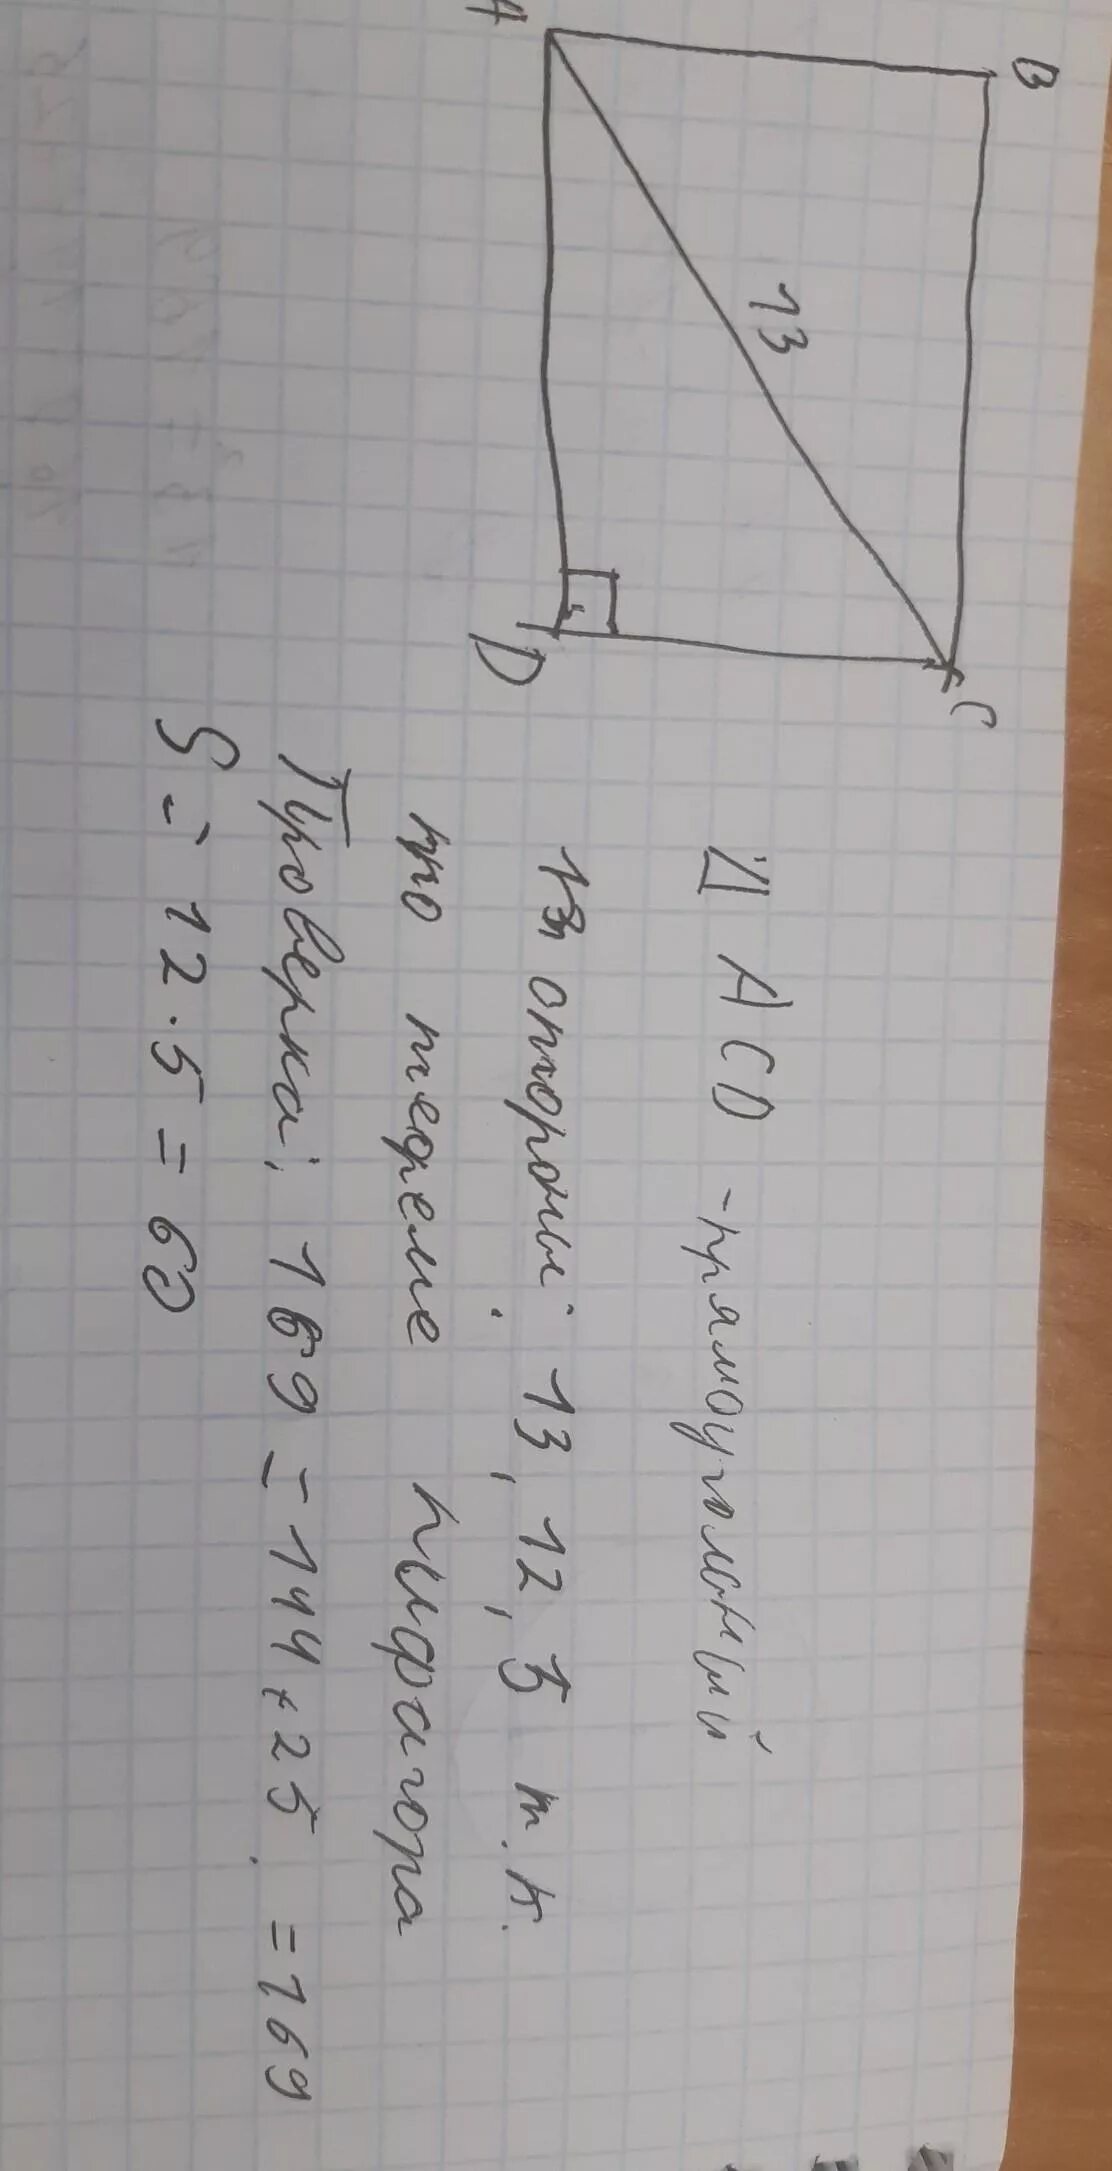 A
B
13
C
D
Δ ACD - прямоугольный
стороны: 13, 12, 5 т.к.
по теореме пифагора
Проверка: 169 = 144 + 25 = 169
S = 12 · 5 = 60